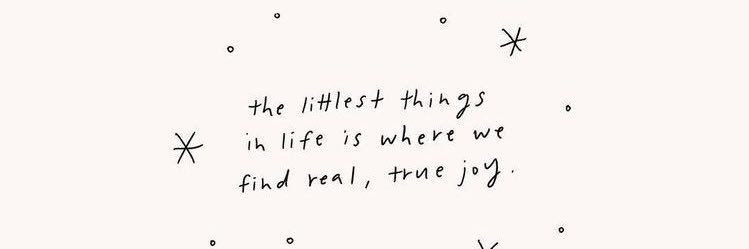 the littlest things
in life is where we
find real, true joy.